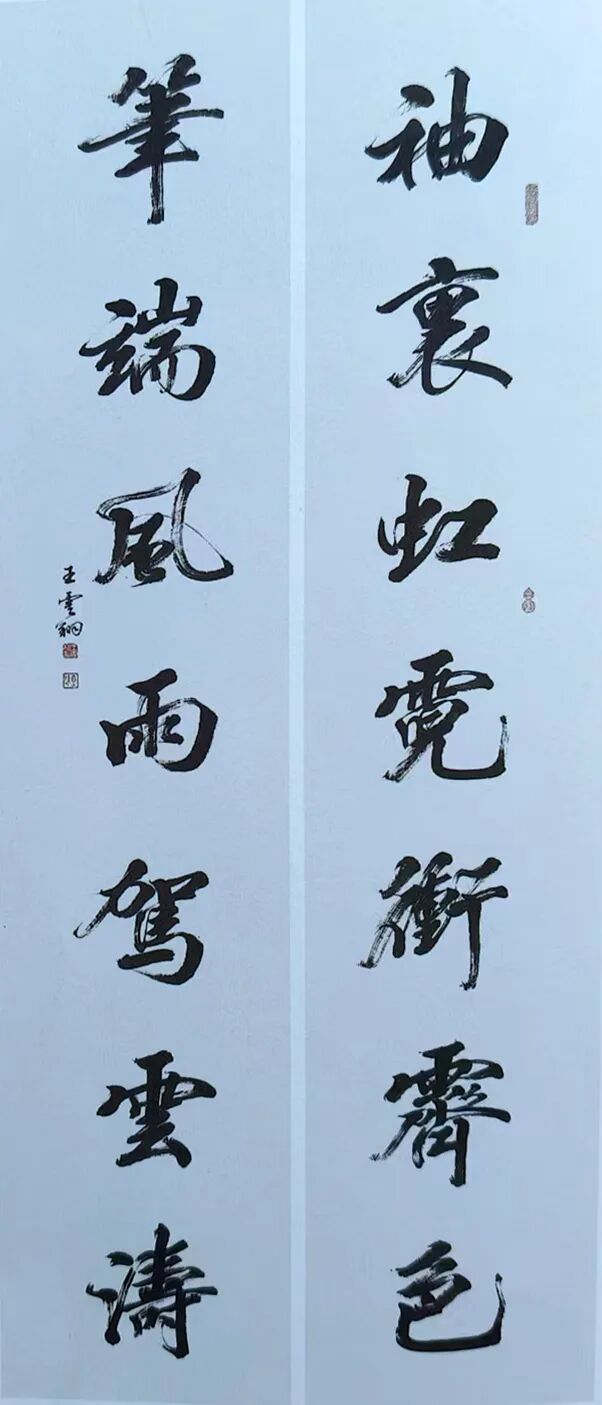 袖裏虹霓衝霽色
筆端風雨駕雲濤
王雲翔